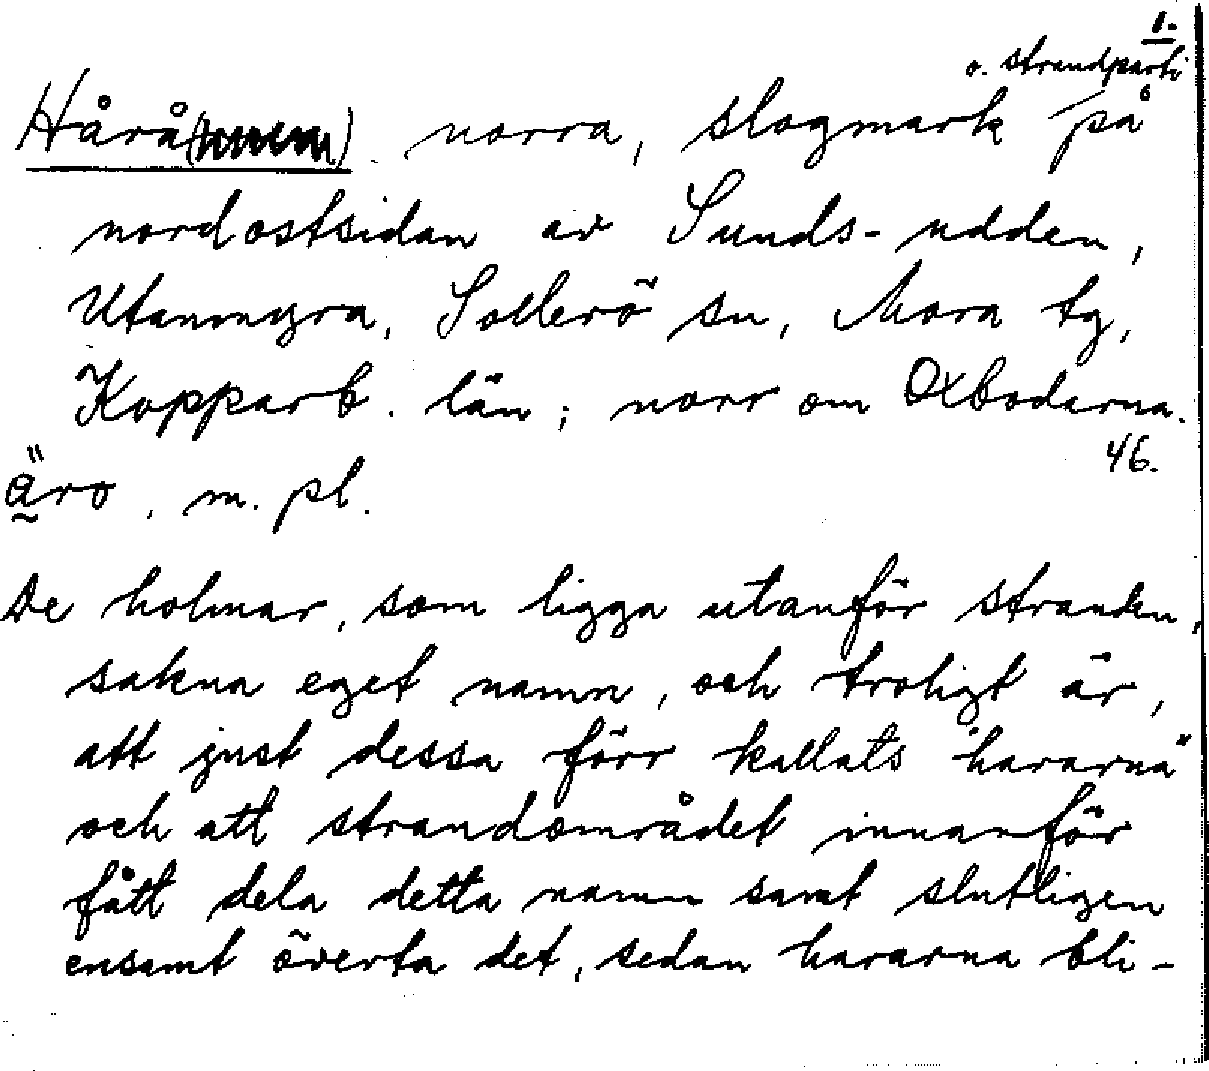 1.
o. strandparti
Hårå norra, slogmark på
nordostsidan av Sunds-udden,
Utanmyra, Sollerö sn, Mora tg,
Kopparb. län; norr om Oxbodarna.
46.
äro, m. pl.
De holmar, som ligga utanför stranden,
sakna eget namn, och troligt är,
att just dessa förr kallats "hararna"
och att strandområdet innanför
fått dela detta namn samt slutligen
ensamt överta det, sedan hararna bli-